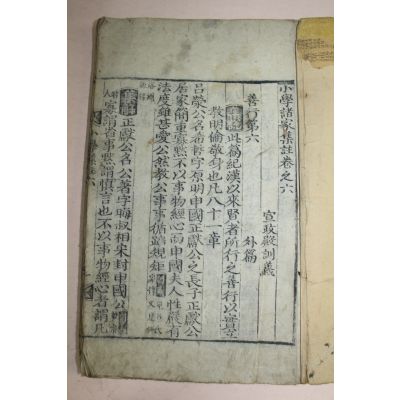 小學諸家集註卷之六
宣政殿訓義
外篇
善行第六
集解此篇紀漢以來賢者所行之善行以實立
敎明倫敬身也凡八十一章
呂榮公名希哲字原明申國正獻公之長子正獻公
居家簡重寡默不以事物經心而申國夫人性嚴有
法度雖甚愛公然敎公事事循蹈規矩
集解正獻公名公著字晦叔相宋封申國公
寡謂省事默謂愼言也不以事物經心者謂凡